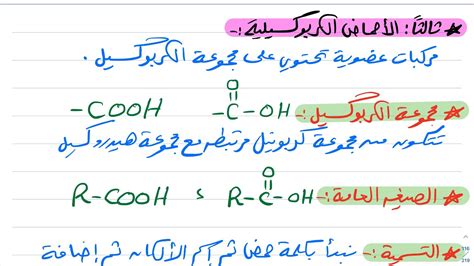 * ثالثًا: الأحماض الكربوكسيلية :-
مركبات عضوية تحتوي على مجموعة الكربوكسيل .
* مجموعة الكربوكسيل :- -C(=O)-OH -COOH
تتكون من مجموعة كربونيل مرتبطه مع مجموعة هيدروكسيل
* الصيغه العامة :- R-C(=O)-OH , R-COOH
* التسمية :- نبدأ بكلمة حمض ثم إسم الألكان ثم إضافة